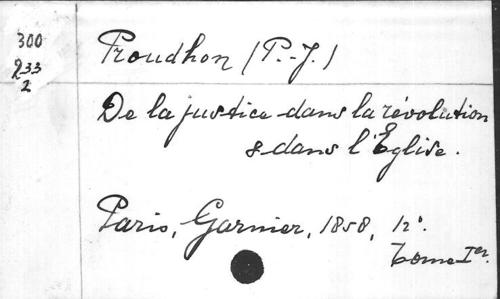 300
233
2
Proudhon (P.-J.)
De la justice dans la révolution
& dans l'Eglise.
Paris, Garnier, 1858, 12°.
Tome Ier.